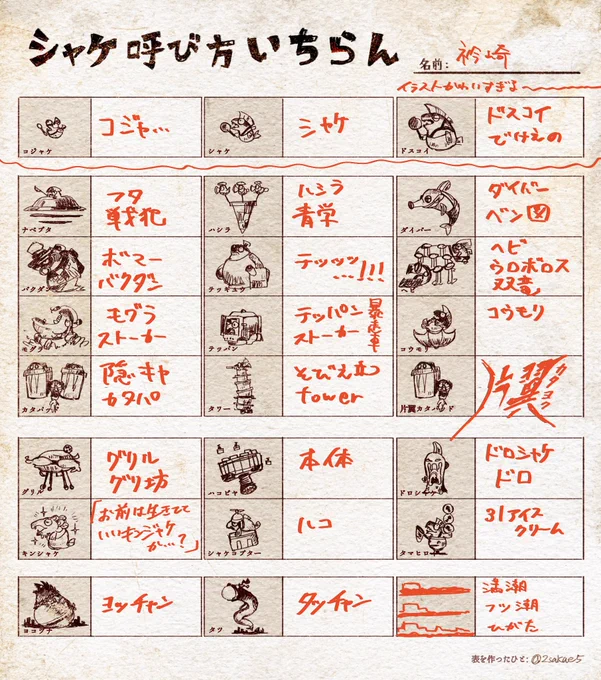 シャケ呼び方いちらん
名前: 衿崎
イラストかわいすぎる〜
コジャケ
コジャ…
シャケ
シャケ
ドスコイ
ドスコイ
でけえの
ナベブタ
フタ
戦犯
ハシラ
ハシラ
青学
ダイバー
ダイバー
ベン図
バクダン
ボマー
バクダン
テッキュウ
テッッッ
…!!!
ヘビ
ヘビ
ウロボロス
双竜
モグラ
モグラ
ストーカー
テッパン
テッパン
ストーカー
暴走車
コウモリ
コウモリ
カタパッド
隠キャ
カタパ
タワー
そびえ立つ
tower
片翼カタパッド
片翼
カタヨク
グリル
グリル
グリ坊
ハコビヤ
本体
ドロシャケ
ドロシャケ
ドロ
キンシャケ
「お前は生きてて
いいキンシャケ
か…?」
シャケコプター
ハコ
タマヒロイ
31アイス
クリーム
ヨコヅナ
ヨッチャン
タツ
タッチャン
満潮
フツ潮
ひがた
表を作ったひと: @2sakae5